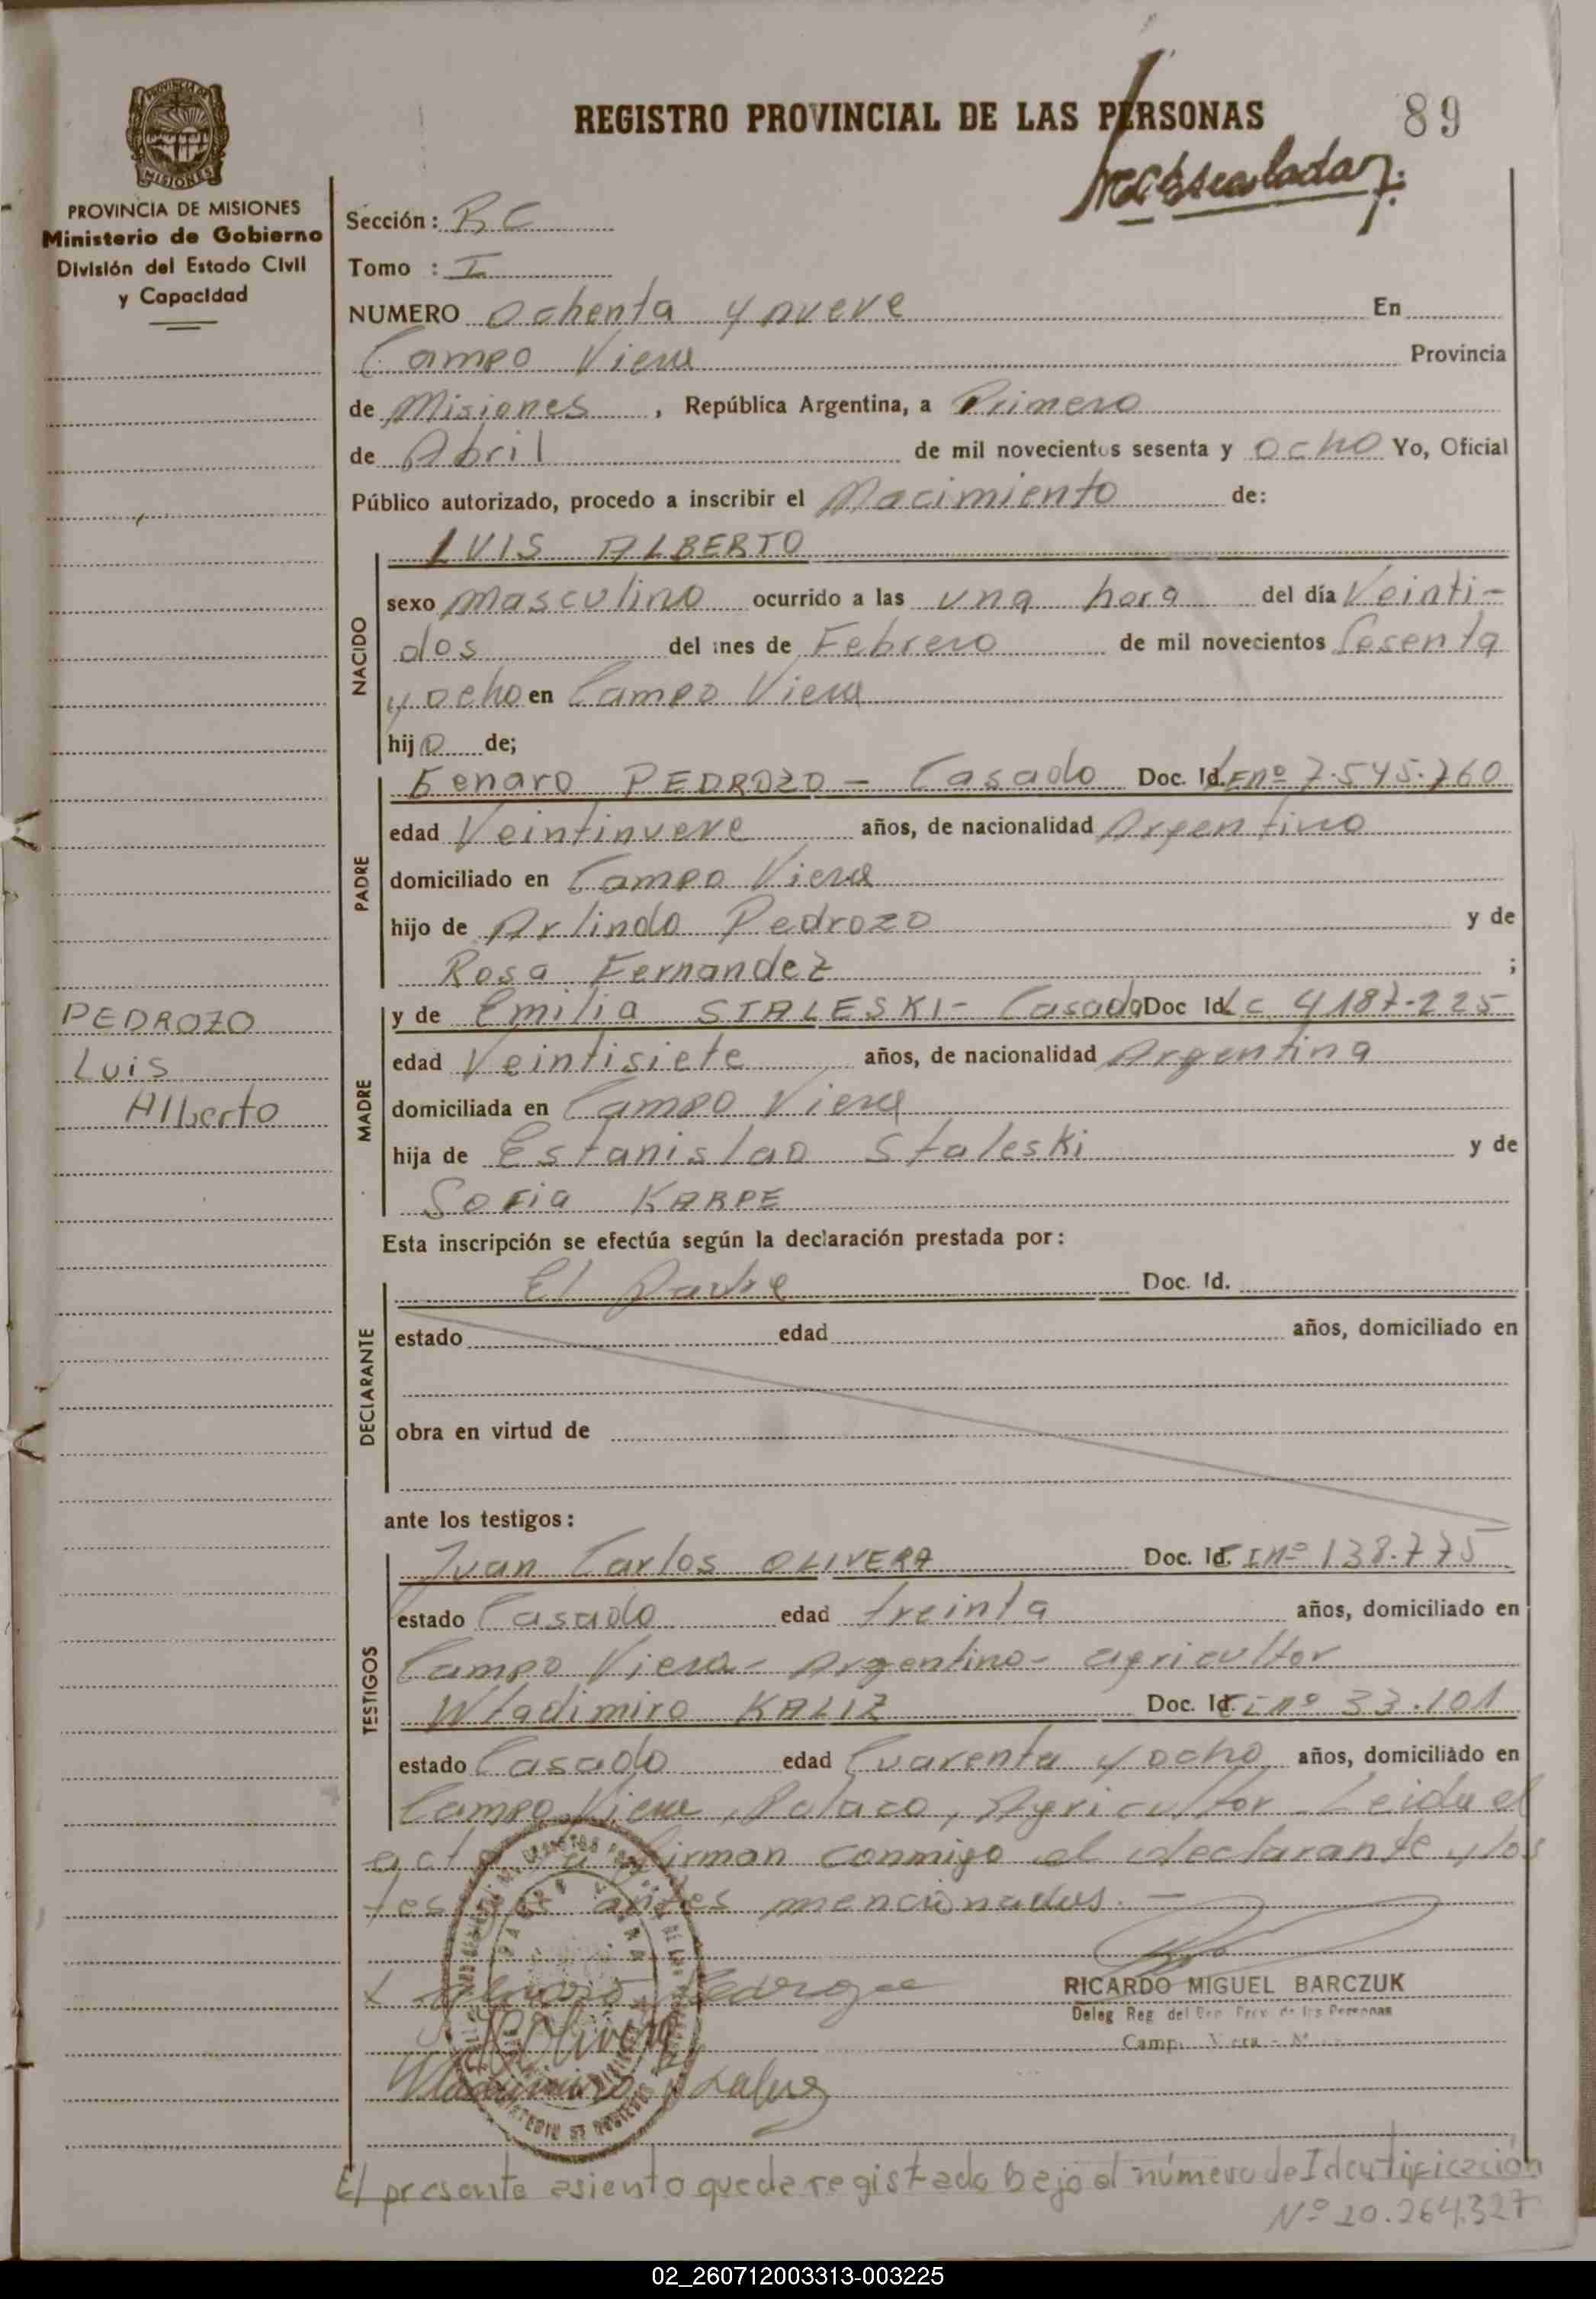 REGISTRO PROVINCIAL DE LAS PERSONAS
89
PROVINCIA DE MISIONES
Ministerio de Gobierno
División del Estado Civil
y Capacidad
Sección: RC
Tomo : I
NUMERO Ochenta y nueve En
Campo Viera Provincia
de Misiones, República Argentina, a Primero
de Abril de mil novecientos sesenta y ocho Yo, Oficial
Público autorizado, procedo a inscribir el Nacimiento de:
LUIS ALBERTO
NACIDO
sexo masculino ocurrido a las una hora del día Veinti-
dos del mes de Febrero de mil novecientos Sesenta
y ocho en Campo Viera
hijo de;
PADRE
Genaro PEDROZO - Casado Doc. Id. Enº 7.545.760
edad Veintinueve años, de nacionalidad Argentino
domiciliado en Campo Viera
hijo de Arlindo Pedrozo y de
Rosa Fernandez ;
PEDROZO
Luis
Alberto
MADRE
y de Emilia STALESKI - Casada Doc Id LC 4187-225
edad Veintisiete años, de nacionalidad Argentina
domiciliada en Campo Viera
hija de Estanislao Staleski y de
Sofia KARPE
Esta inscripción se efectúa según la declaración prestada por:
DECLARANTE
El Padre Doc. Id.
estado edad años, domiciliado en
obra en virtud de
ante los testigos:
TESTIGOS
Juan Carlos OLIVERA Doc. Id. Inº 138.775
estado Casado edad treinta años, domiciliado en
Campo Viera - Argentino - agricultor
Wladimiro KALIZ Doc. Id. Inº 33.101
estado Casado edad Cuarenta y ocho años, domiciliado en
Campo Viera, Polaco, Agricultor - Leida el
acta firman conmigo el declarante y los
testigos antes mencionados. -
RICARDO MIGUEL BARCZUK
Deleg Reg del Reg Prov de las Personas
El presente asiento queda registrado bajo el número de Identificación
Nº 20.264.327
02_260712003313-003225